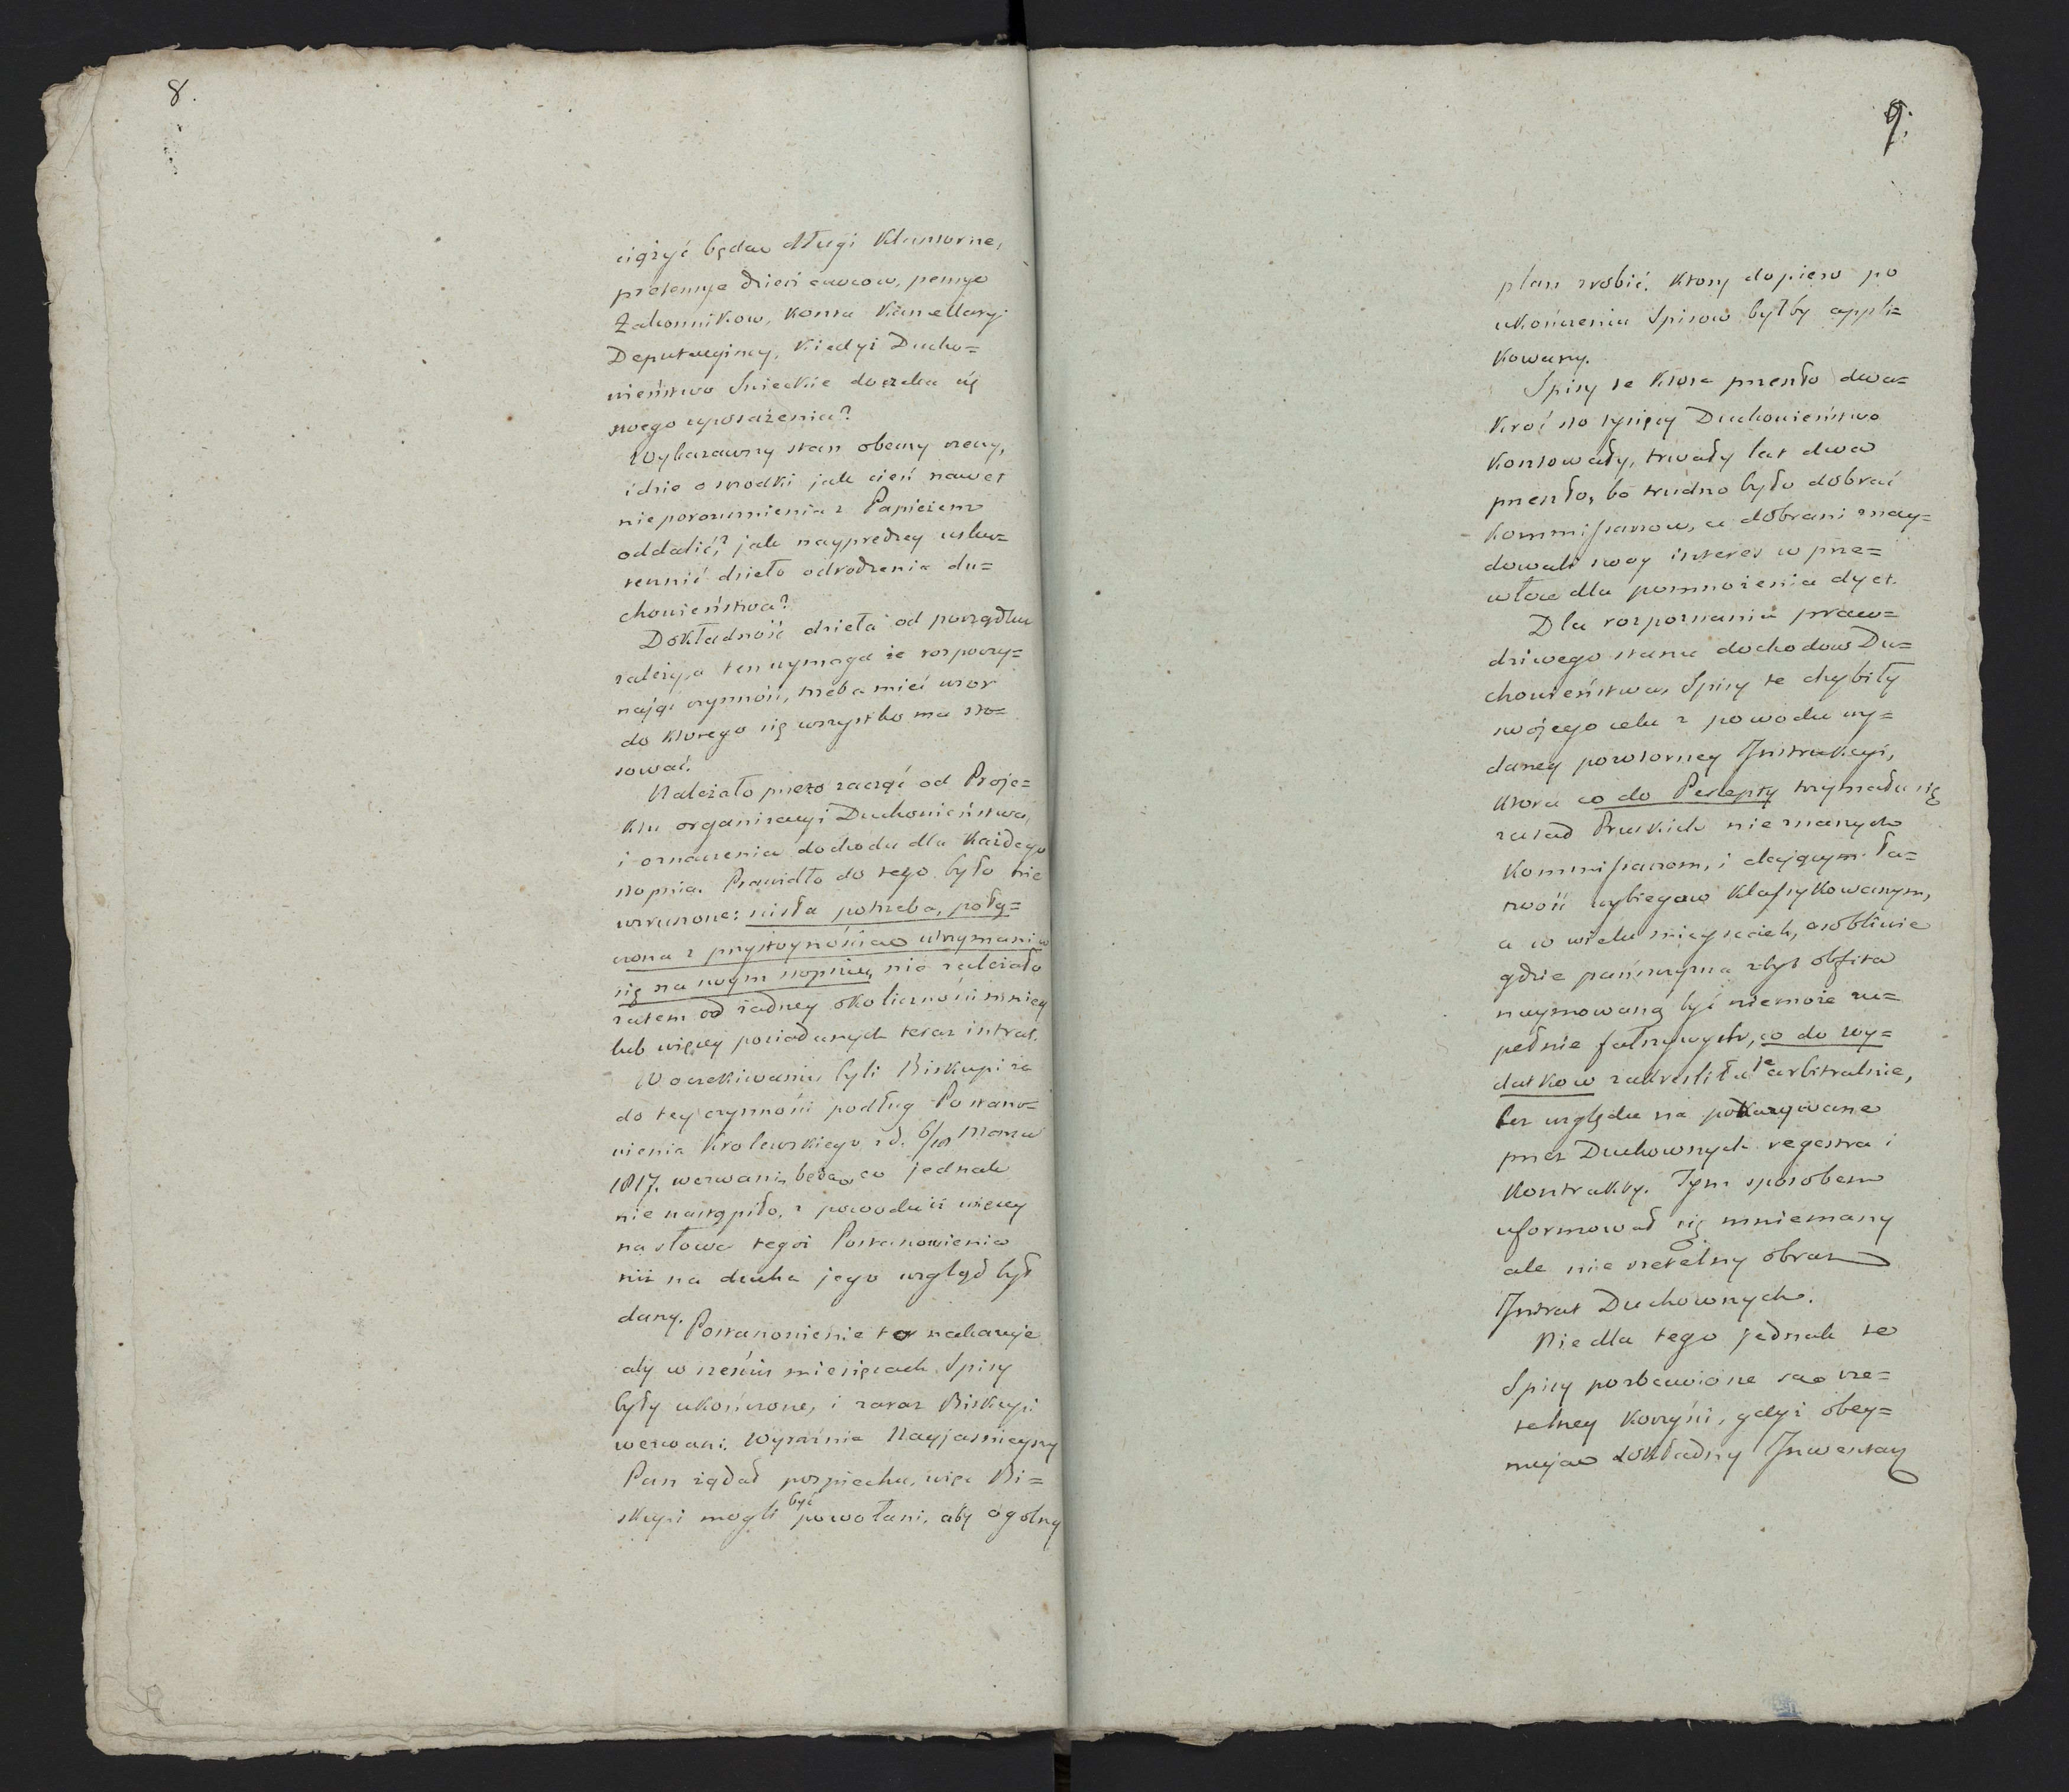 8.
ciążyć będą długi Klasztorne,
pretensye dzieci i wdow, pensye
Zakonnikow, koszta Kancellaryi
Deputacyiney, kiedyż Ducho=
wieństwo Świeckie doczeka się
swego uposażenia?
Wykazawszy stan obecny rzeczy,
idzie o srodki jak cień nawet
nieporozumienia z Papieżem
oddalić? jak nayprędzey usku=
tecznić dzieło odrodzenia du=
chowieństwa?
Dokładność dzieła od porządku
zależy, a ten wymaga że rozpoczy=
nając czynność, trzeba mieć wzor
do ktorego się wszystko ma sto=
sować.
Należało przeto zacząć od Proje=
ktu organizacyi Duchowieństwa,
i oznaczenia dochodu dla każdego
stopnia. Prawidło do tego było nie
wzruszone: ścisła potrzeba, połą=
czona z przyzwoynością utrzymania
się na swym stopniu, nie zależało
zatem od żadney okoliczności mniey
lub więcey posiadanych teraz intrat.
W oczekiwaniu byli Biskupi że
do tey czynności podług Postano=
wienia Krolewskiego z d. 6/18 Marca
1817. wezwani będą, co jednak
nie nastąpiło, z powodu iż więcey
na słowa tegoż Postanowienia
niż na ducha jego wzgląd był
dany.
Postanowienie to nakazuje
aby w sześciu miesiącach Spisy
były ukończone, i zaraz Biskupi
wezwani. Wyraźnie Nayjaśnieyszy
Pan żądał pospiechu, więc Bi=
skupi mogli być powołani, aby ogolny
9.
plan zrobić, ktory dopiero po
ukończeniu Spisow byłby appli=
kowany.
Spisy te ktore przeszło dwa=
kroć sto tysięcy Duchowieństwo
kosztowały, trwały lat dwa
przeszło, bo trudno było dobrać
Kommissarzow, a dobrani znay=
dowali swoy interes w prze=
włoce dla pomnożenia dyet.
Dla rozpoznania praw=
dziwego stanu dochodow Du=
chowieństwa, Spisy te chybiły
swojego celu z powodu wy=
daney powtorney Instrukcyi,
ktora co do Percepty trzymała się
zasad Pruskich nieznanych
Kommissarzom, i dającym ła=
twość wybiegow klassyfikowanym,
a w wielu mieyscach, osobliwie
gdzie pańszczyzna zbyt obfita
naymowaną być niemoże zu=
pełnie fałszywych, co do wy=
datkow zakreśliła je arbitralnie,
bez względu na pokazywane
przez Duchownych regestra i
Kontrakty. Tym sposobem
uformował się mniemany
ale nie rzetelny obraz
Intrat Duchownych.
Nie dla tego jednak te
Spisy pozbawione są rze=
telney korzyści, gdyż obey=
mują dokładny Inwentarz